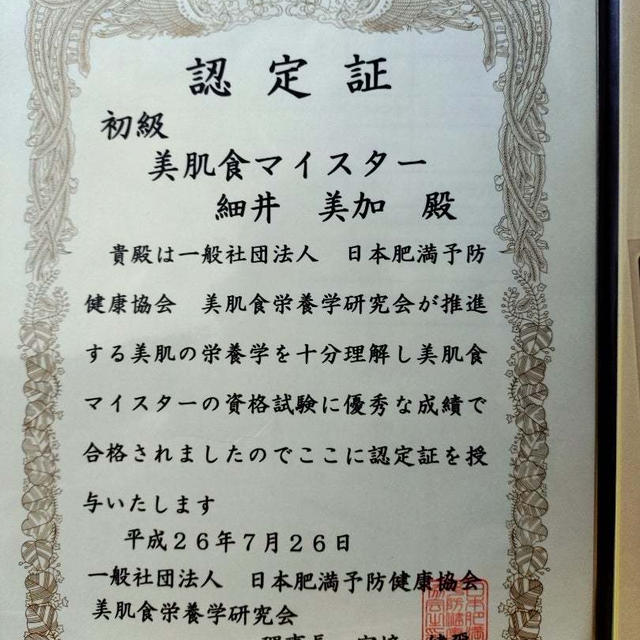 認定証
初級
美肌食マイスター
細井 美加 殿
貴殿は一般社団法人 日本肥満予防
健康協会 美肌食栄養学研究会が推進
する美肌の栄養学を十分理解し美肌食
マイスターの資格試験に優秀な成績で
合格されましたのでここに認定証を授
与いたします
平成26年7月26日
一般社団法人 日本肥満予防健康協会
美肌食栄養学研究会
理事長